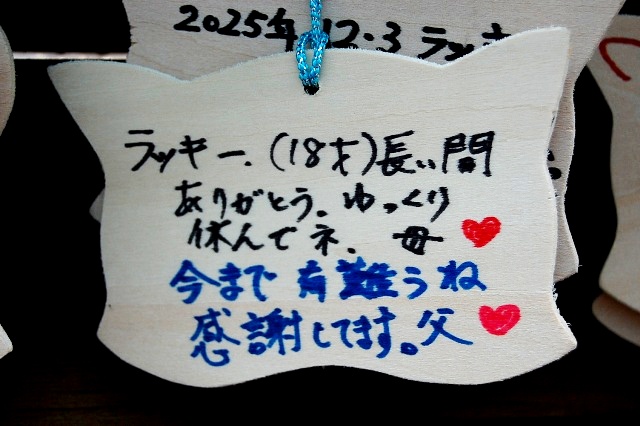 2025年12.3 ラッキ
ラッキー.(18才)長い間
ありがとう.ゆっくり
休んでネ. 母
今まで有難うね
感謝してます。父